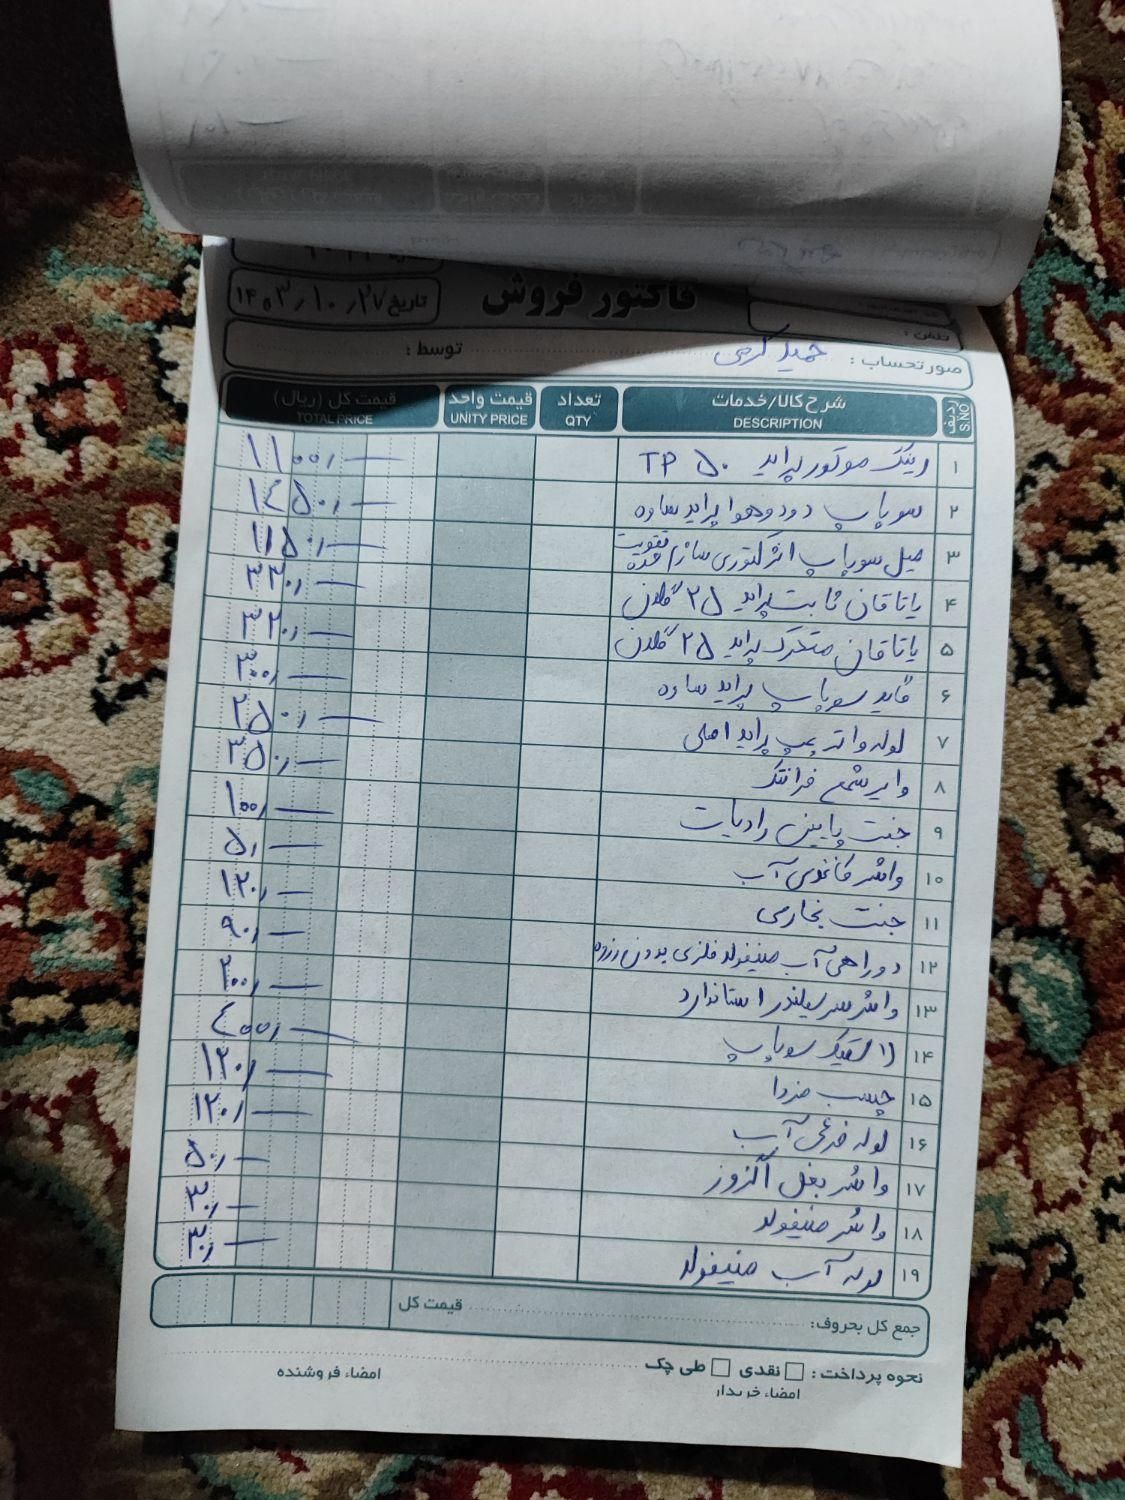 فاکتور فروش
تاریخ ۱۴۰۳٫۱۰٫۲۷
تلفن :
صورتحساب : حمید کرمی توسط :
ردیف شرح کالا/خدمات تعداد قیمت واحد قیمت کل (ریال)
S.NO DESCRIPTION QTY UNITY PRICE TOTAL PRICE
۱ رینگ موتور پراید ۵۰ TP ۱۱۰۰٫—
۲ سوپاپ دود و هوا پراید ساده ۱۴۵۰٫—
۳ میل سوپاپ انژکتوری سازم تقویت شده ۱۱۵۰٫—
۴ یاتاقان ثابت پراید ۲۵ گلدن ۳۳۰٫—
۵ یاتاقان متحرک پراید ۲۵ گلدن ۳۲۰٫—
۶ گاید سوپاپ پراید ساده ۳۰۰٫—
۷ لوله واتر پمپ پراید اصلی ۲۵۰٫—
۸ وایر شمع فرانتک ۳۵۰٫—
۹ جنت پایین رادیات ۱۰۰٫—
۱۰ واشر کاغذی آب ۵٫—
۱۱ جنت بخاری ۱۲۰٫—
۱۲ دوراهی آب منیفولد فلزی بدون زرده ۹۰٫—
۱۳ واشر سرسیلندر استاندارد ۲۰۰٫—
۱۴ لاستیک سوپاپ ۴۰۰٫—
۱۵ چسب مزدا ۱۲۰٫—
۱۶ لوله فرعی آب ۱۲۰٫—
۱۷ واشر بغل اگزوز ۵۰٫—
۱۸ واشر منیفولد ۳۰٫—
۱۹ لوله آب منیفولد ۳۰٫—
جمع کل بحروف: قیمت کل
نحوه پرداخت : نقدی طی چک
امضاء خریدار امضاء فروشنده